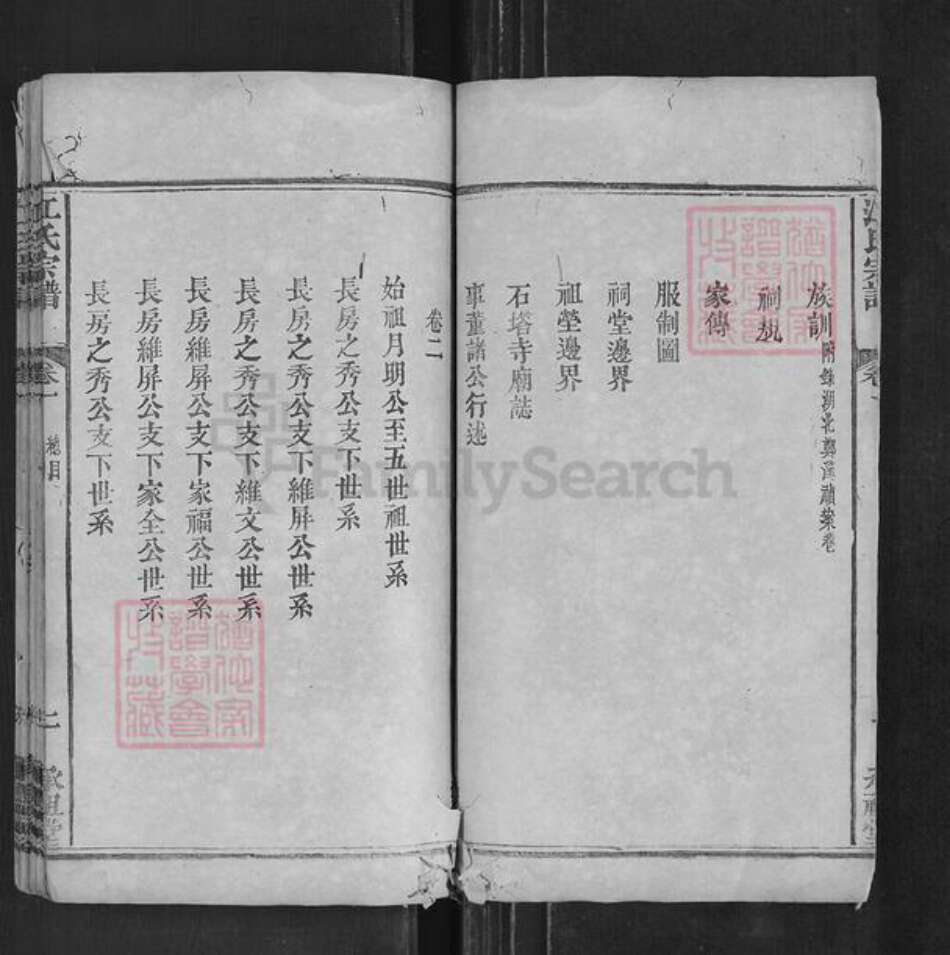 族訓附錄湖北鄭溪禎案卷
祠規
家傳
服制圖
祠堂邊界
祖塋邊界
石塔寺廟誌
事董諸公行述
卷二
始祖月明公至五世祖世系
長房之秀公支下世系
長房之秀公支下維屏公世系
長房之秀公支下維文公世系
長房維屏公支下家福公世系
長房維屏公支下家全公世系
長房之秀公支下世系
江氏宗譜
卷一
總目
二
FamilySearch